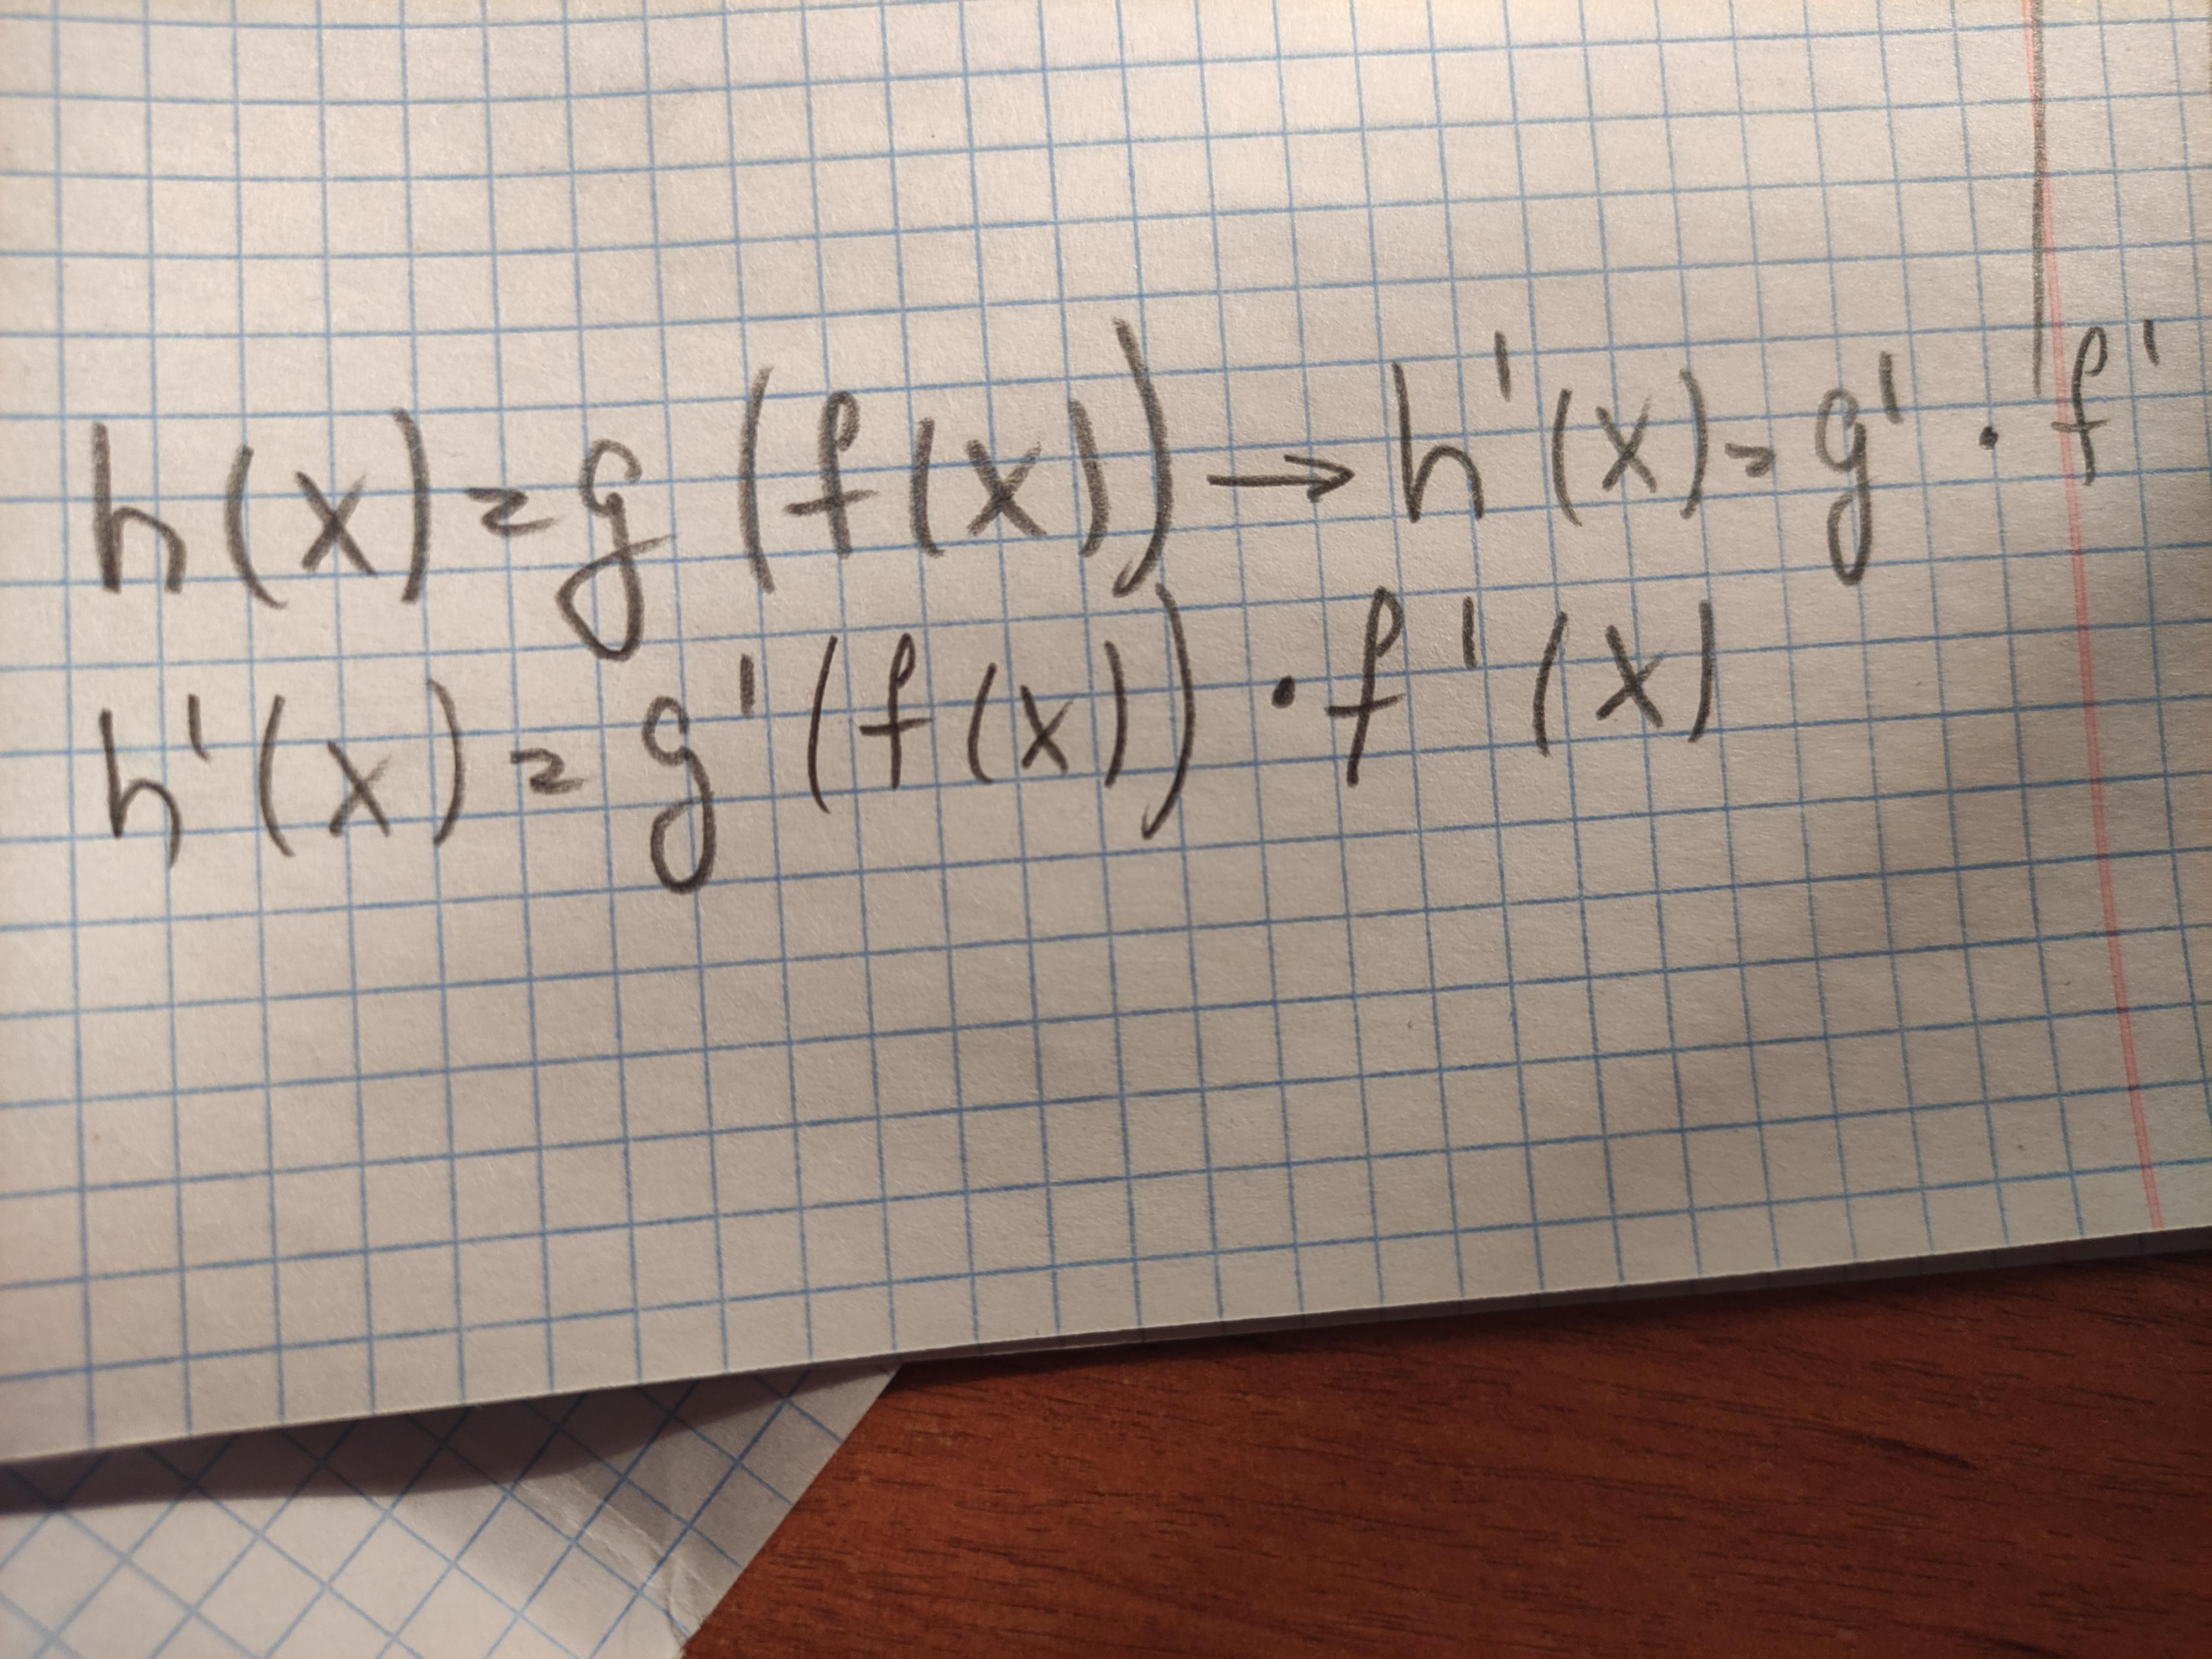 h(x)=g(f(x))→h'(x)=g'·f'
h'(x)=g'(f(x))·f'(x)